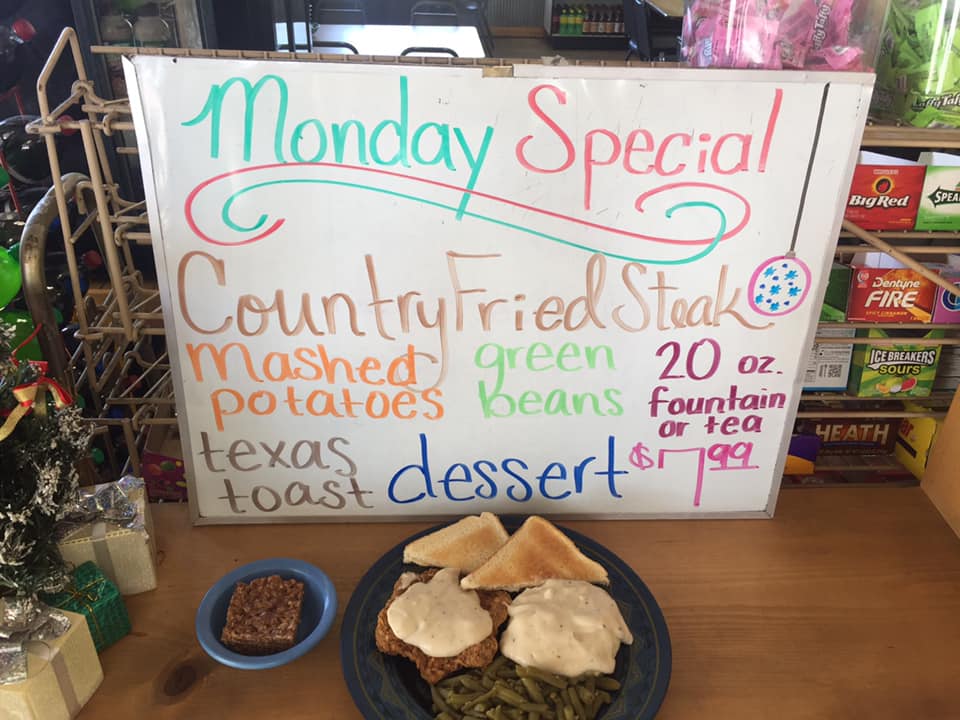 Monday Special
Country Fried Steak
mashed potatoes
green beans
20 oz. fountain or tea
texas toast
dessert
$7.99
Laffy Taffy
BigRed
Dentyne
FIRE
SPICY CINNAMON
ICE BREAKERS
sours
HEATH